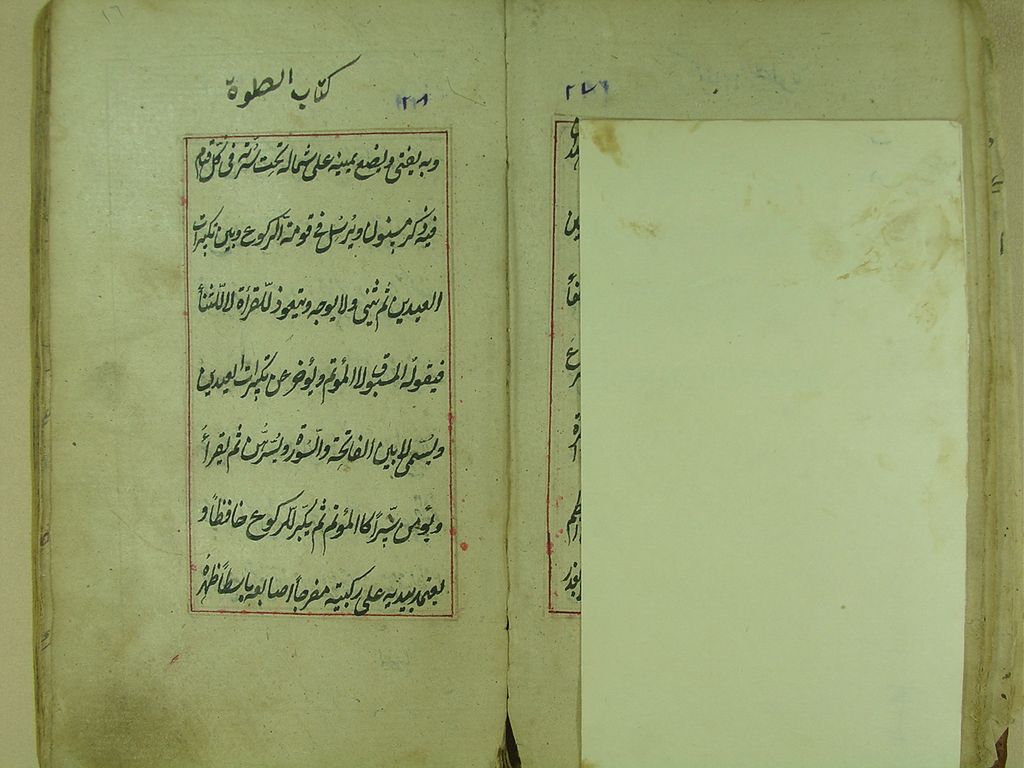 كتاب الصلوة
وبه يفتى ويضع يمينه على شماله تحت سرته فى كل قيام
فيه ذكر مسنون ويرسل فى قومة الركوع وبين تكبيرات
العيدين ثم يثنى ولا يوجه ويتعوذ للقرأة لا للثنأ
فيقوله المسبوق لا المؤتم ويؤخر عن تكبيرات العيدين
ويسمى لا بين الفاتحة والسورة ويسرهن ثم يقرأ
ويؤمن سرا كالمؤتم ثم يكبر للركوع خافظا و
يعتمد بيديه على ركبتيه مفرجا اصابعه باسطا ظهره